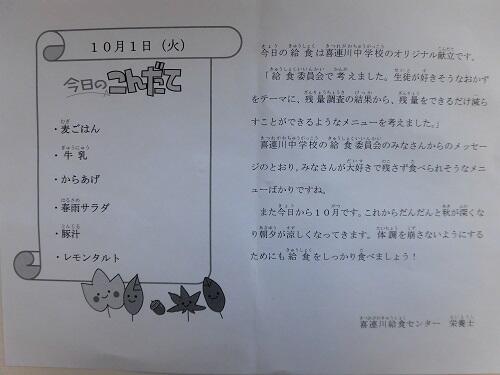 10月1日（火）
今日のこんだて
・麦ごはん
・牛乳
・からあげ
・春雨サラダ
・豚汁
・レモンタルト
今日の給食は喜連川中学校のオリジナル献立です。
「給食委員会で考えました。生徒が好きそうなおかず
をテーマに、残量調査の結果から、残量をできるだけ減ら
すことができるようなメニューを考えました。」
喜連川中学校の給食委員会のみなさんからのメッセー
ジのとおり、みなさんが大好きで残さず食べられそうなメニ
ューばかりですね。
また今日から10月です。これからだんだんと秋が深くな
り朝夕が涼しくなってきます。体調を崩さないようにする
ためにも給食をしっかり食べましょう！
喜連川給食センター 栄養士